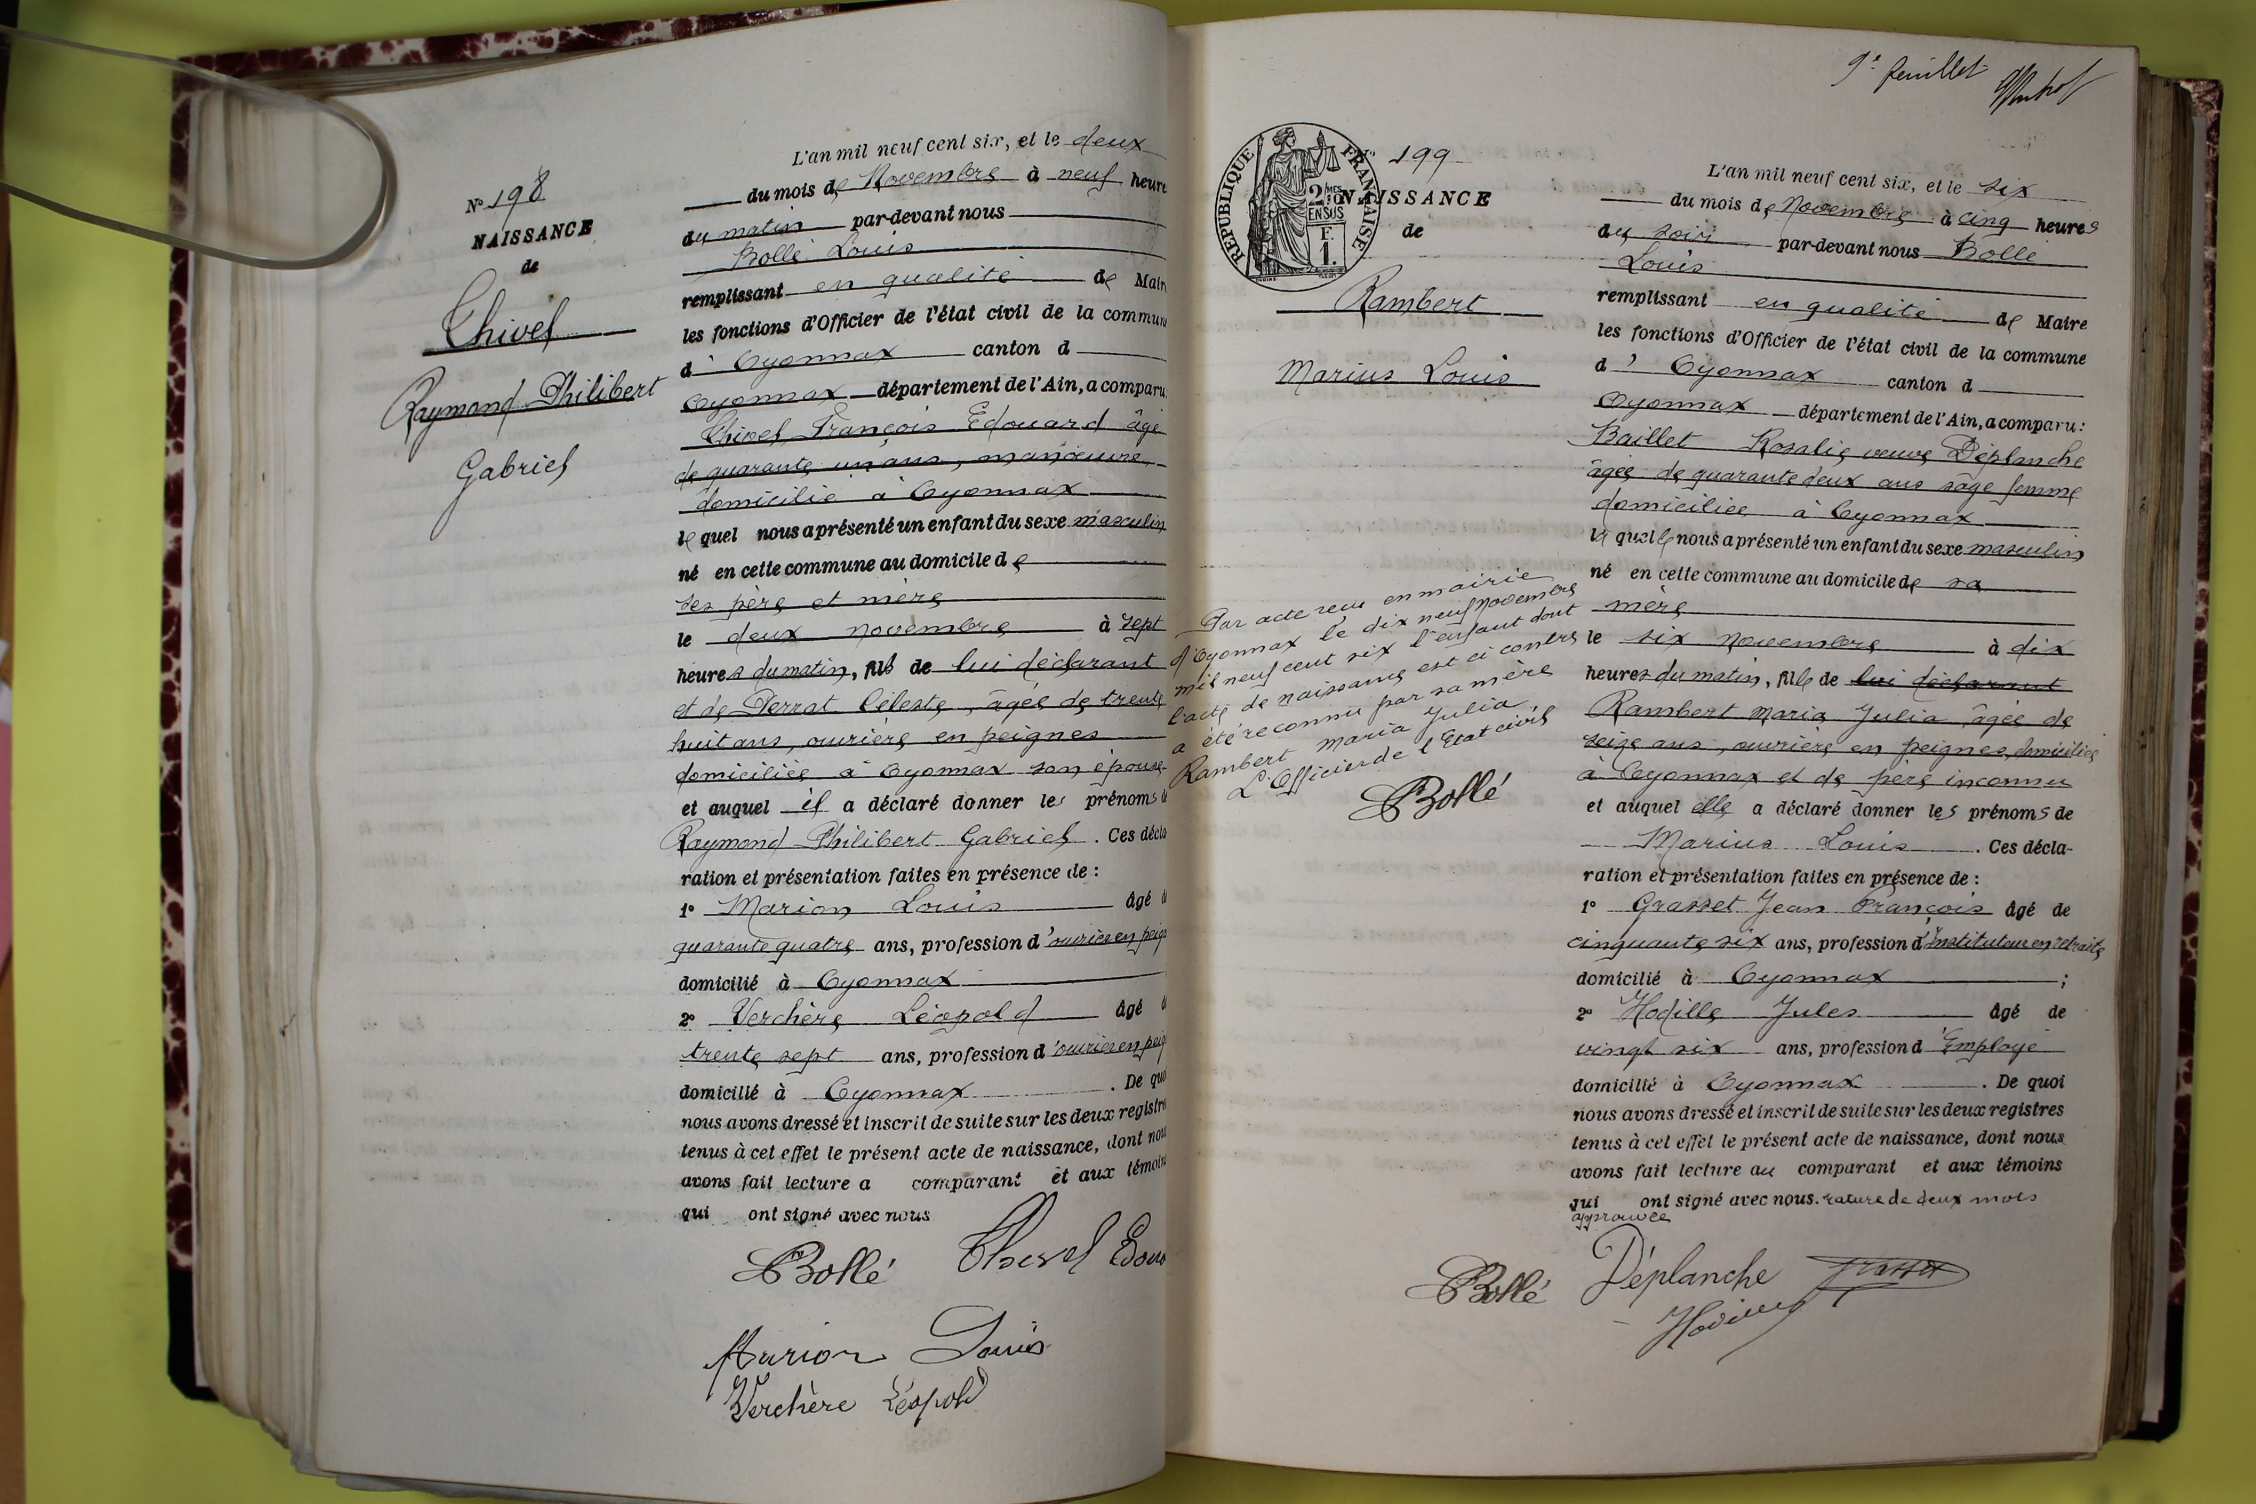 N° 198
NAISSANCE
de
Thivel
Raymond Philibert
Gabriel
L'an mil neuf cent six, et le deux
du mois de Novembre à neuf heure
du matin par-devant nous
Bollé Louis
remplissant en qualité de Mair
les fonctions d'Officier de l'état civil de la commun
d' Oyonnax canton d
Oyonnax département de l'Ain, a comparu
Thivel François Edouard âgé
de quarante un ans, manœuvre
domicilié à Oyonnax
le quel nous a présenté un enfant du sexe masculin
né en cette commune au domicile de
ses père et mère
le deux novembre à sept
heures du matin, fils de lui déclarant
et de Perrat Céleste, âgée de trente
huit ans, ouvrière en peignes
domiciliée à Oyonnax son épouse
et auquel il a déclaré donner les prénoms d
Raymond Philibert Gabriel. Ces décla
ration et présentation faites en présence de :
1° Marion Louis âgé d
quarante quatre ans, profession d'ouvrier en peig
domicilié à Oyonnax
2° Verchère Léopold âgé d
trente sept ans, profession d'ouvrier en peig
domicilié à Oyonnax. De quo
nous avons dressé et inscrit de suite sur les deux registre
tenus à cet effet le présent acte de naissance, dont nou
avons fait lecture a comparant et aux témoin
qui ont signé avec nous
Bollé Thivel Edou
Marion Louis
Verchère Léopold
9e feuillet
N° 199
NAISSANCE
de
REPUBLIQUE FRANÇAISE
2 MES
EN SUS
F.
1.
Rambert
Marius Louis
Par acte reçu en mairie
d'Oyonnax le dix neuf Novembre
mil neuf cent six l'enfant dont
l'acte de naissance est ci contre
a été reconnu par sa mère
Rambert Maria Julia
L'Officier de l'Etat civil
Bollé
L'an mil neuf cent six, et le six
du mois de Novembre à cinq heures
du soir par-devant nous Bollé
Louis
remplissant en qualité de Maire
les fonctions d'Officier de l'état civil de la commune
d' Oyonnax canton d
Oyonnax département de l'Ain, a comparu :
Baillet Rosalie veuve Déplanche
âgée de quarante deux ans sage femme
domiciliée à Oyonnax
la quelle nous a présenté un enfant du sexe masculin
né en cette commune au domicile de sa
mère
le six Novembre à dix
heures du matin, fils de lui déclarant
Rambert Maria Julia âgée de
seize ans, ouvrière en peignes, domiciliée
à Oyonnax et de père inconnu
et auquel elle a déclaré donner les prénoms de
Marius Louis. Ces décla-
ration et présentation faites en présence de :
1° Grasset Jean François âgé de
cinquante six ans, profession d'Instituteur en retraite
domicilié à Oyonnax ;
2° Hodille Jules âgé de
vingt six ans, profession d'Employé
domicilié à Oyonnax. De quoi
nous avons dressé et inscrit de suite sur les deux registres
tenus à cet effet le présent acte de naissance, dont nous
avons fait lecture au comparant et aux témoins
qui ont signé avec nous. rature de deux mots
approuvée
Bollé Déplanche Grasset